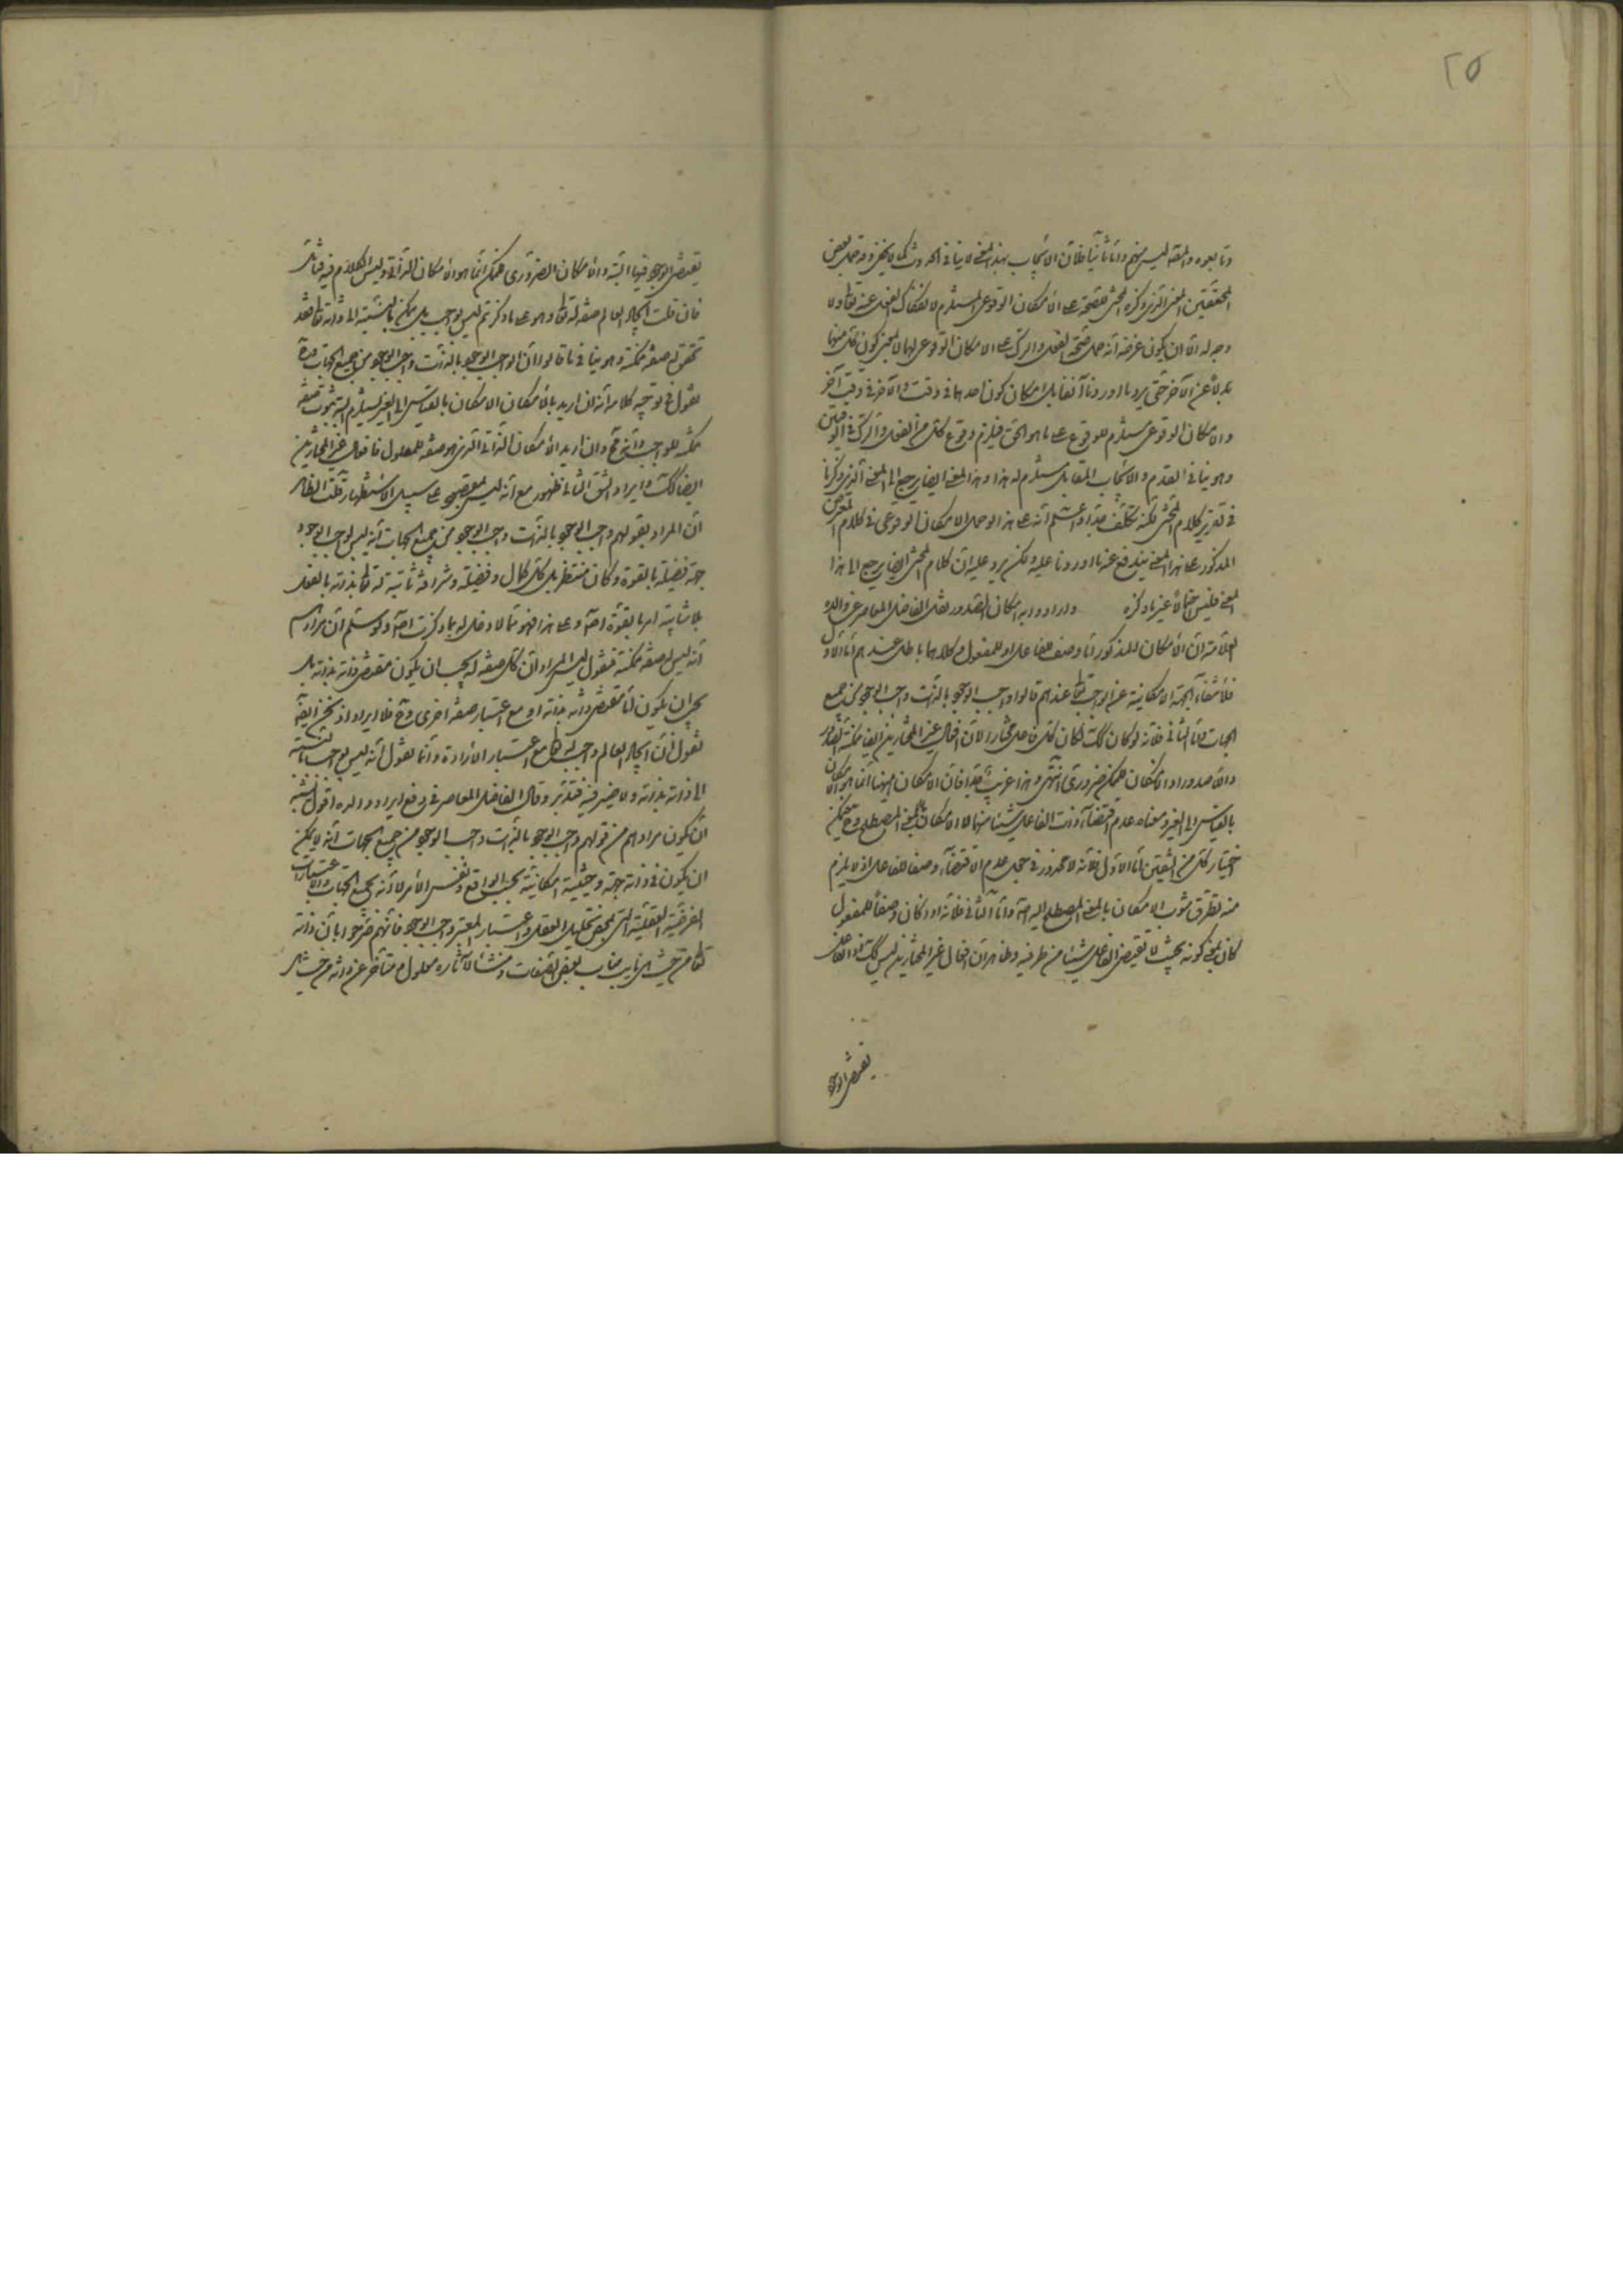 ٢٥
وتابعوه والمقه ليس منهم واما ثانيا فلان الايجاب بهذا المعنى لا ينافى الحدوث كما لا يخفى وقد حمل بعض
المحققين المعنى الذى ذكره المحشى للصحة على الامكان الوقوعى المستلزم لانفكاك الفعل عنه تعالى ولا
وجه له الا ان يكون غرضه انه حمل صحة الفعل والترك على الامكان الوقوعى لهما لا بمعنى كون كل منهما
بدلا عن الآخر حتى يرد ما اوردنا آنفا بل امكان كون احدهما فى وقت والآخر فى وقت آخر
والامكان الوقوعى مستلزم للوقوع على ما هو الحق فيلزم وقوع كل من الفعل والترك فى الوقتين
وهو ينافى القدم والايجاب المقابل مستلزم له هذا وهذا المعنى ايضا يرجع الى المعنى الذى ذكرنا
فى تقرير كلام المحشى لكنه تكلف جدا واعلم انه على هذا لو حمل الامكان الوقوعى فى كلام المعترض
المذكور على هذا المعنى يندفع عنه ما اوردنا عليه ولكن يرد عليه ان كلام المحشى ايضا يرجع الى هذا
المعنى فليس احتمالا غير ما ذكره واراد وارد امكان الصدور نقل الفاضل المعاصر عن والده
العلامة ان الامكان المذكور اما وصف للفاعل او للمفعول وكلاهما باطل عندهم اما الاول
فلانتفاء الجهة الامكانية عن الواجب تعالى عندهم قالوا واجب الوجود بالذات واجب الوجود من جميع
الجهات واما الثانى فلانه لو كان كك لكان كل فاعل مختارا لان افعال غير المختارين ايضا ممكنة الصدور
واللاصدور اذ امكان الممكن ضرورى انتهى وهذا غريب جدا فان الامكان ههنا انما هو الامكان
بالقياس الى الغير ومعناه عدم اقتضاء ذات الفاعل شيئا منهما لا الامكان بالمعنى المصطلح وح يمكن
اختيار كل من الشقين اما الاول فلانه لا محذور فى جعل عدم الاقتضاء وصفا للفاعل اذ لا يلزم
منه تطرق شوب الامكان بالمعنى المصطلح اليه اصلا واما الثانى فلانه اذا كان وصفا للمفعول
كان بمعنى كونه بحيث لا يقتضى الفاعل شيئا من طرفيه وظاهر ان افعال غير المختارين ليس كك اذ الفاعل
يقتضى الوجود
يقتضى الوجود فيها البتة والامكان الضرورى للممكن انما هو الامكان الذاتى وليس الكلام فيه فتأمل
فان قلت ايجاد العالم صفة له تعالى وهو على ما ذكرتم ليس بواجب بل ممكن بالنسبة الى ذاته تعالى فقد
تحقق له صفة ممكنة وهو ينافى ما قالوا ان الواجب الوجود بالذات واجب الوجود من جميع الجهات
نقول فى توجيه كلامه انه ان اريد بالامكان الامكان بالقياس الى الغير يستلزم البتة ثبوت صفة
ممكنة للواجب وانه ح وان اريد الامكان الذاتى الذى هو صفة للمعلول فافعال غير المختارين
ايضا كك وايراد الشق الثانى لظهوره مع انه ليس بمقصود على سبيل الاستظهار قلت الظاهر
ان المراد بقولهم واجب الوجود بالذات واجب الوجود من جميع الجهات انه ليس لواجب الوجود
جهة فضيلة بالقوة وكان منتظر بل كل كمال وفضيلة وشرافة ثابتة له تعالى بذاته بالفعل
بلا شائبة امر ما بالقوة اصلا وعلى هذا فهو مما لا دخل له بما ذكرت اصلا ولو سلم ان مرادهم
انه ليس له صفة ممكنة فنقول ليس المراد ان كل صفة له يجب ان يكون مقتضى ذاته بذاته بل
يجب ان يكون اما مقتضى ذاته بذاته او مع اعتبار صفة اخرى وح فلا ايراد اذ نحن ايضا
نقول ان ايجاد العالم واجب له تعالى مع اعتبار الارادة وانما نقول انه ليس بواجب بالنسبة
الى ذاته بذاته ولا ضير فيه فتدبر وقال الفاضل المعاصر فى دفع ايراد والده اقول يشبه
ان يكون مرادهم من قولهم واجب الوجود بالذات واجب الوجود من جميع الجهات انه لا يمكن
ان يكون فى ذاته جهة وحيثية امكانية بحسب الواقع ونفس الامر لا انه بجميع الجهات والاعتبارات
الفرضية العقلية التى بمحض تحليل العقل واعتبار المعتبر واجب الوجود فانهم صرحوا بان ذاته
تعالى من حيث هى نايب مناب بعض الصفات ومنشأ لآثاره معلول متأخر عن ذاته من حيث هى